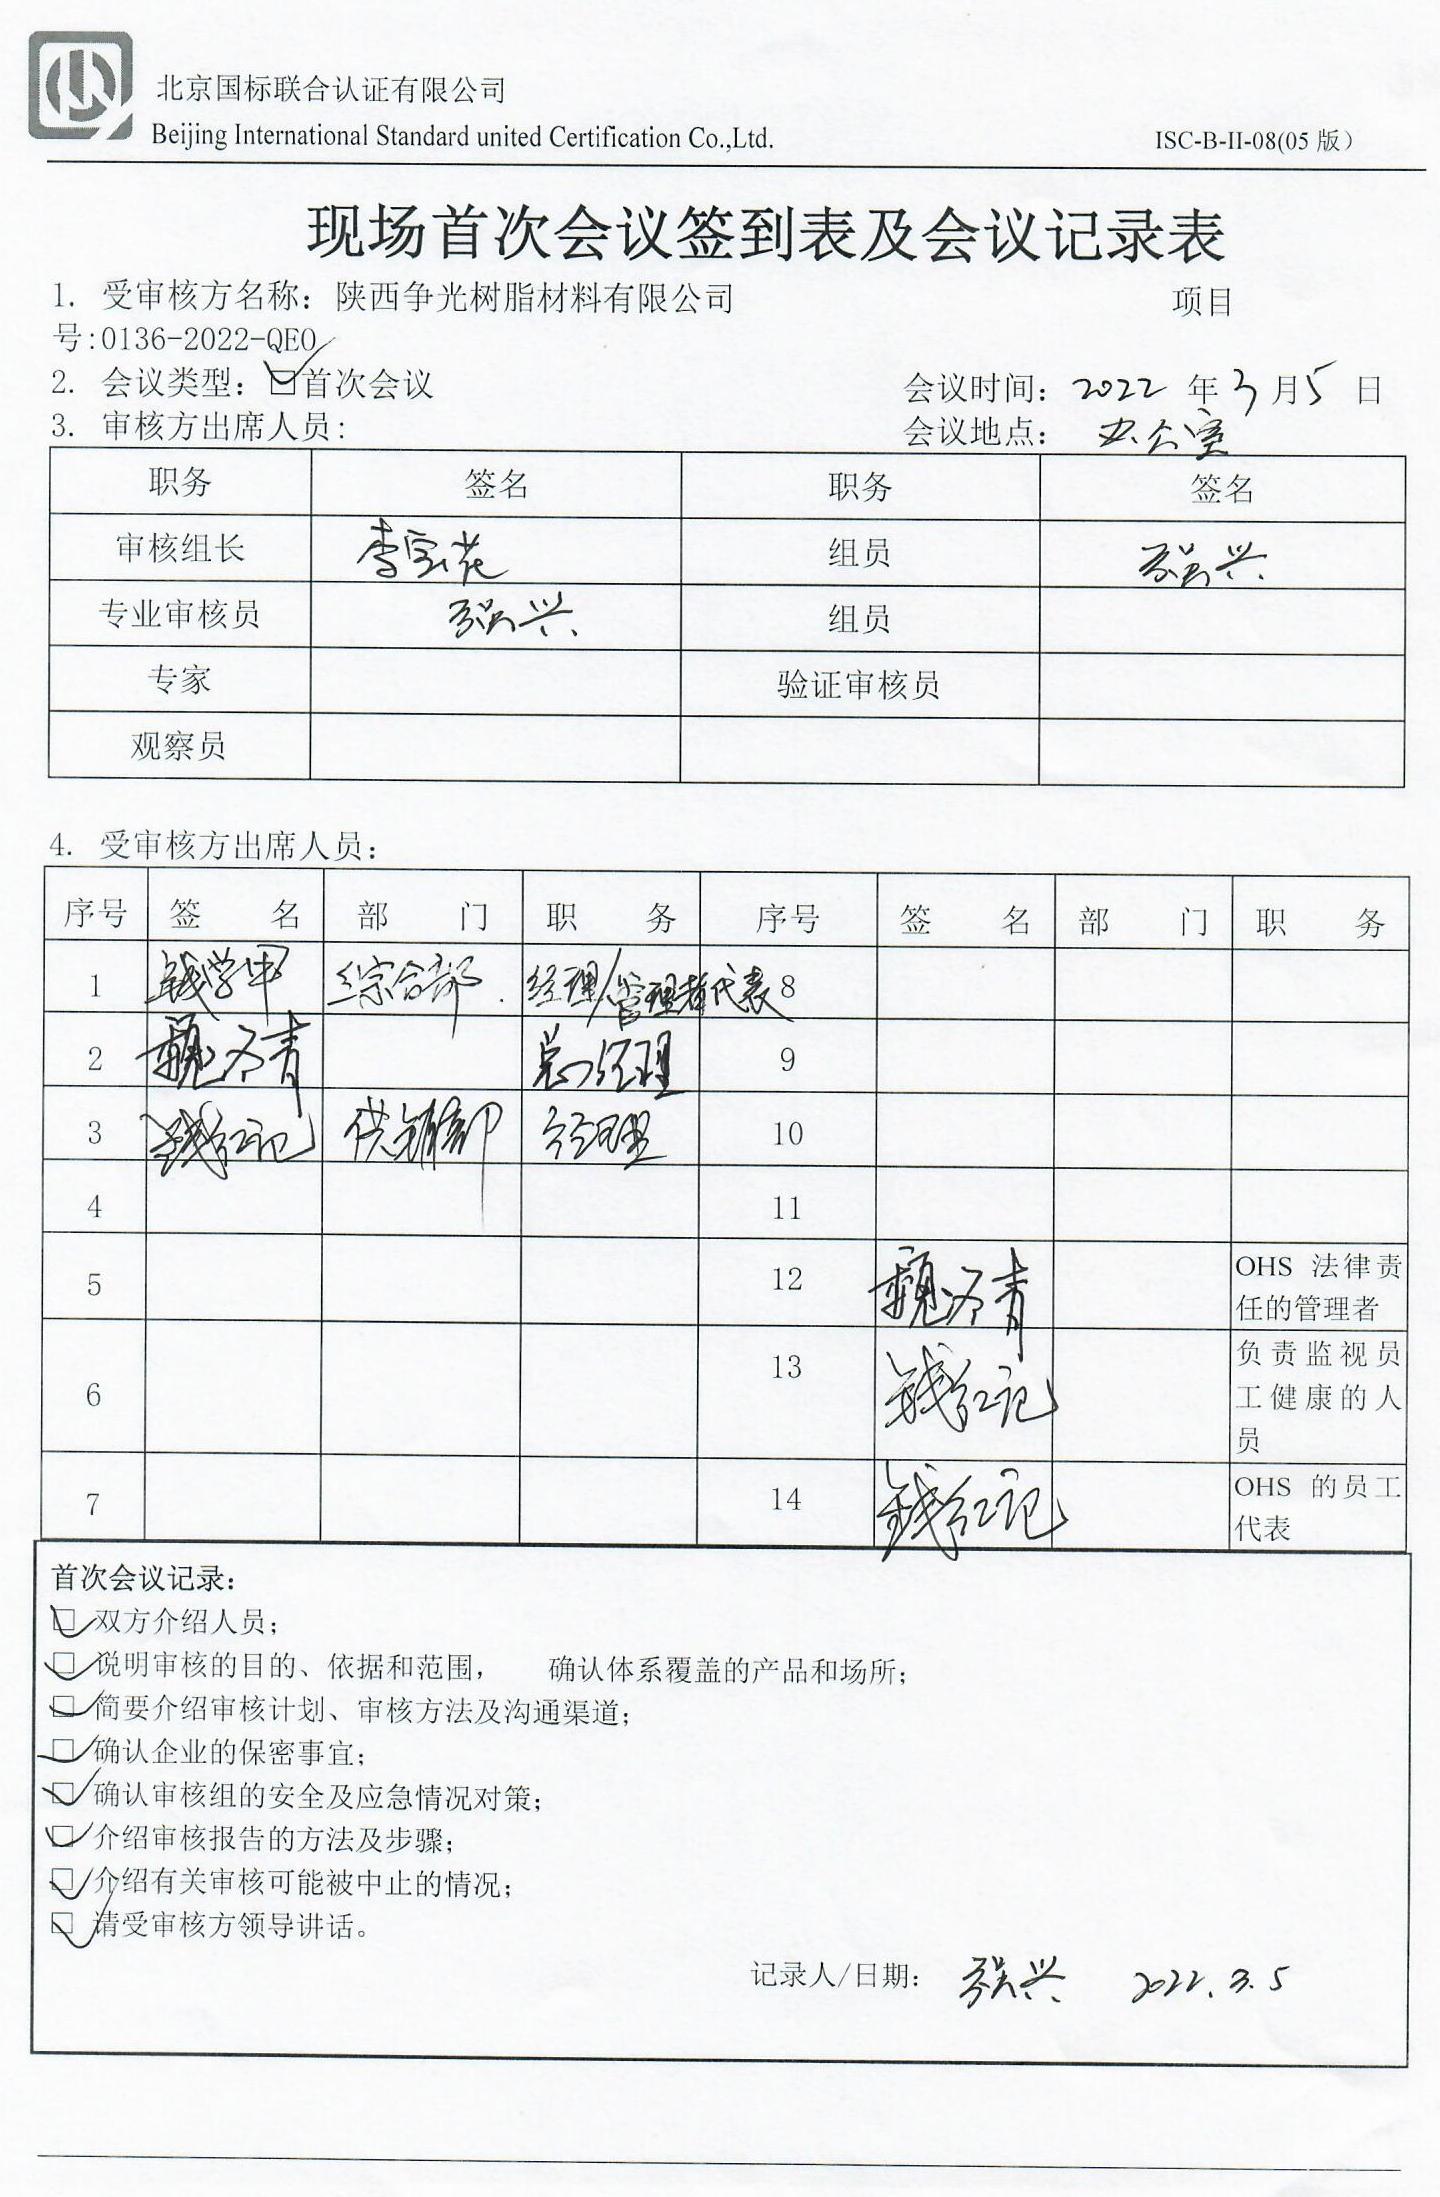 北京国标联合认证有限公司
Beijing International Standard united Certification Co.,Ltd.
ISC-B-II-08(05 版)
现场首次会议签到表及会议记录表
1. 受审核方名称：陕西争光树脂材料有限公司 项目
号:0136-2022-QEO
2. 会议类型：☑首次会议 会议时间：2022 年 3 月 5 日
3. 审核方出席人员： 会议地点：办公室
职务 签名 职务 签名
审核组长 李宝花 组员 强兴
专业审核员 强兴 组员
专家 验证审核员
观察员
4. 受审核方出席人员：
序号 签 名 部 门 职 务 序号 签 名 部 门 职 务
1 钱学甲 综合部 经理/管理者代表 8
2 魏冬青 总经理 9
3 钱红记 供销部 经理 10
4 11
5 12 魏冬青 OHS 法律责
任的管理者
6 13 钱红记 负责监视员
工健康的人
员
7 14 钱红记 OHS 的员工
代表
首次会议记录：
☑双方介绍人员；
☑说明审核的目的、依据和范围， 确认体系覆盖的产品和场所；
☑简要介绍审核计划、审核方法及沟通渠道；
☑确认企业的保密事宜；
☑确认审核组的安全及应急情况对策；
☑介绍审核报告的方法及步骤；
☑介绍有关审核可能被中止的情况；
☑请受审核方领导讲话。
记录人/日期： 强兴 2022.3.5